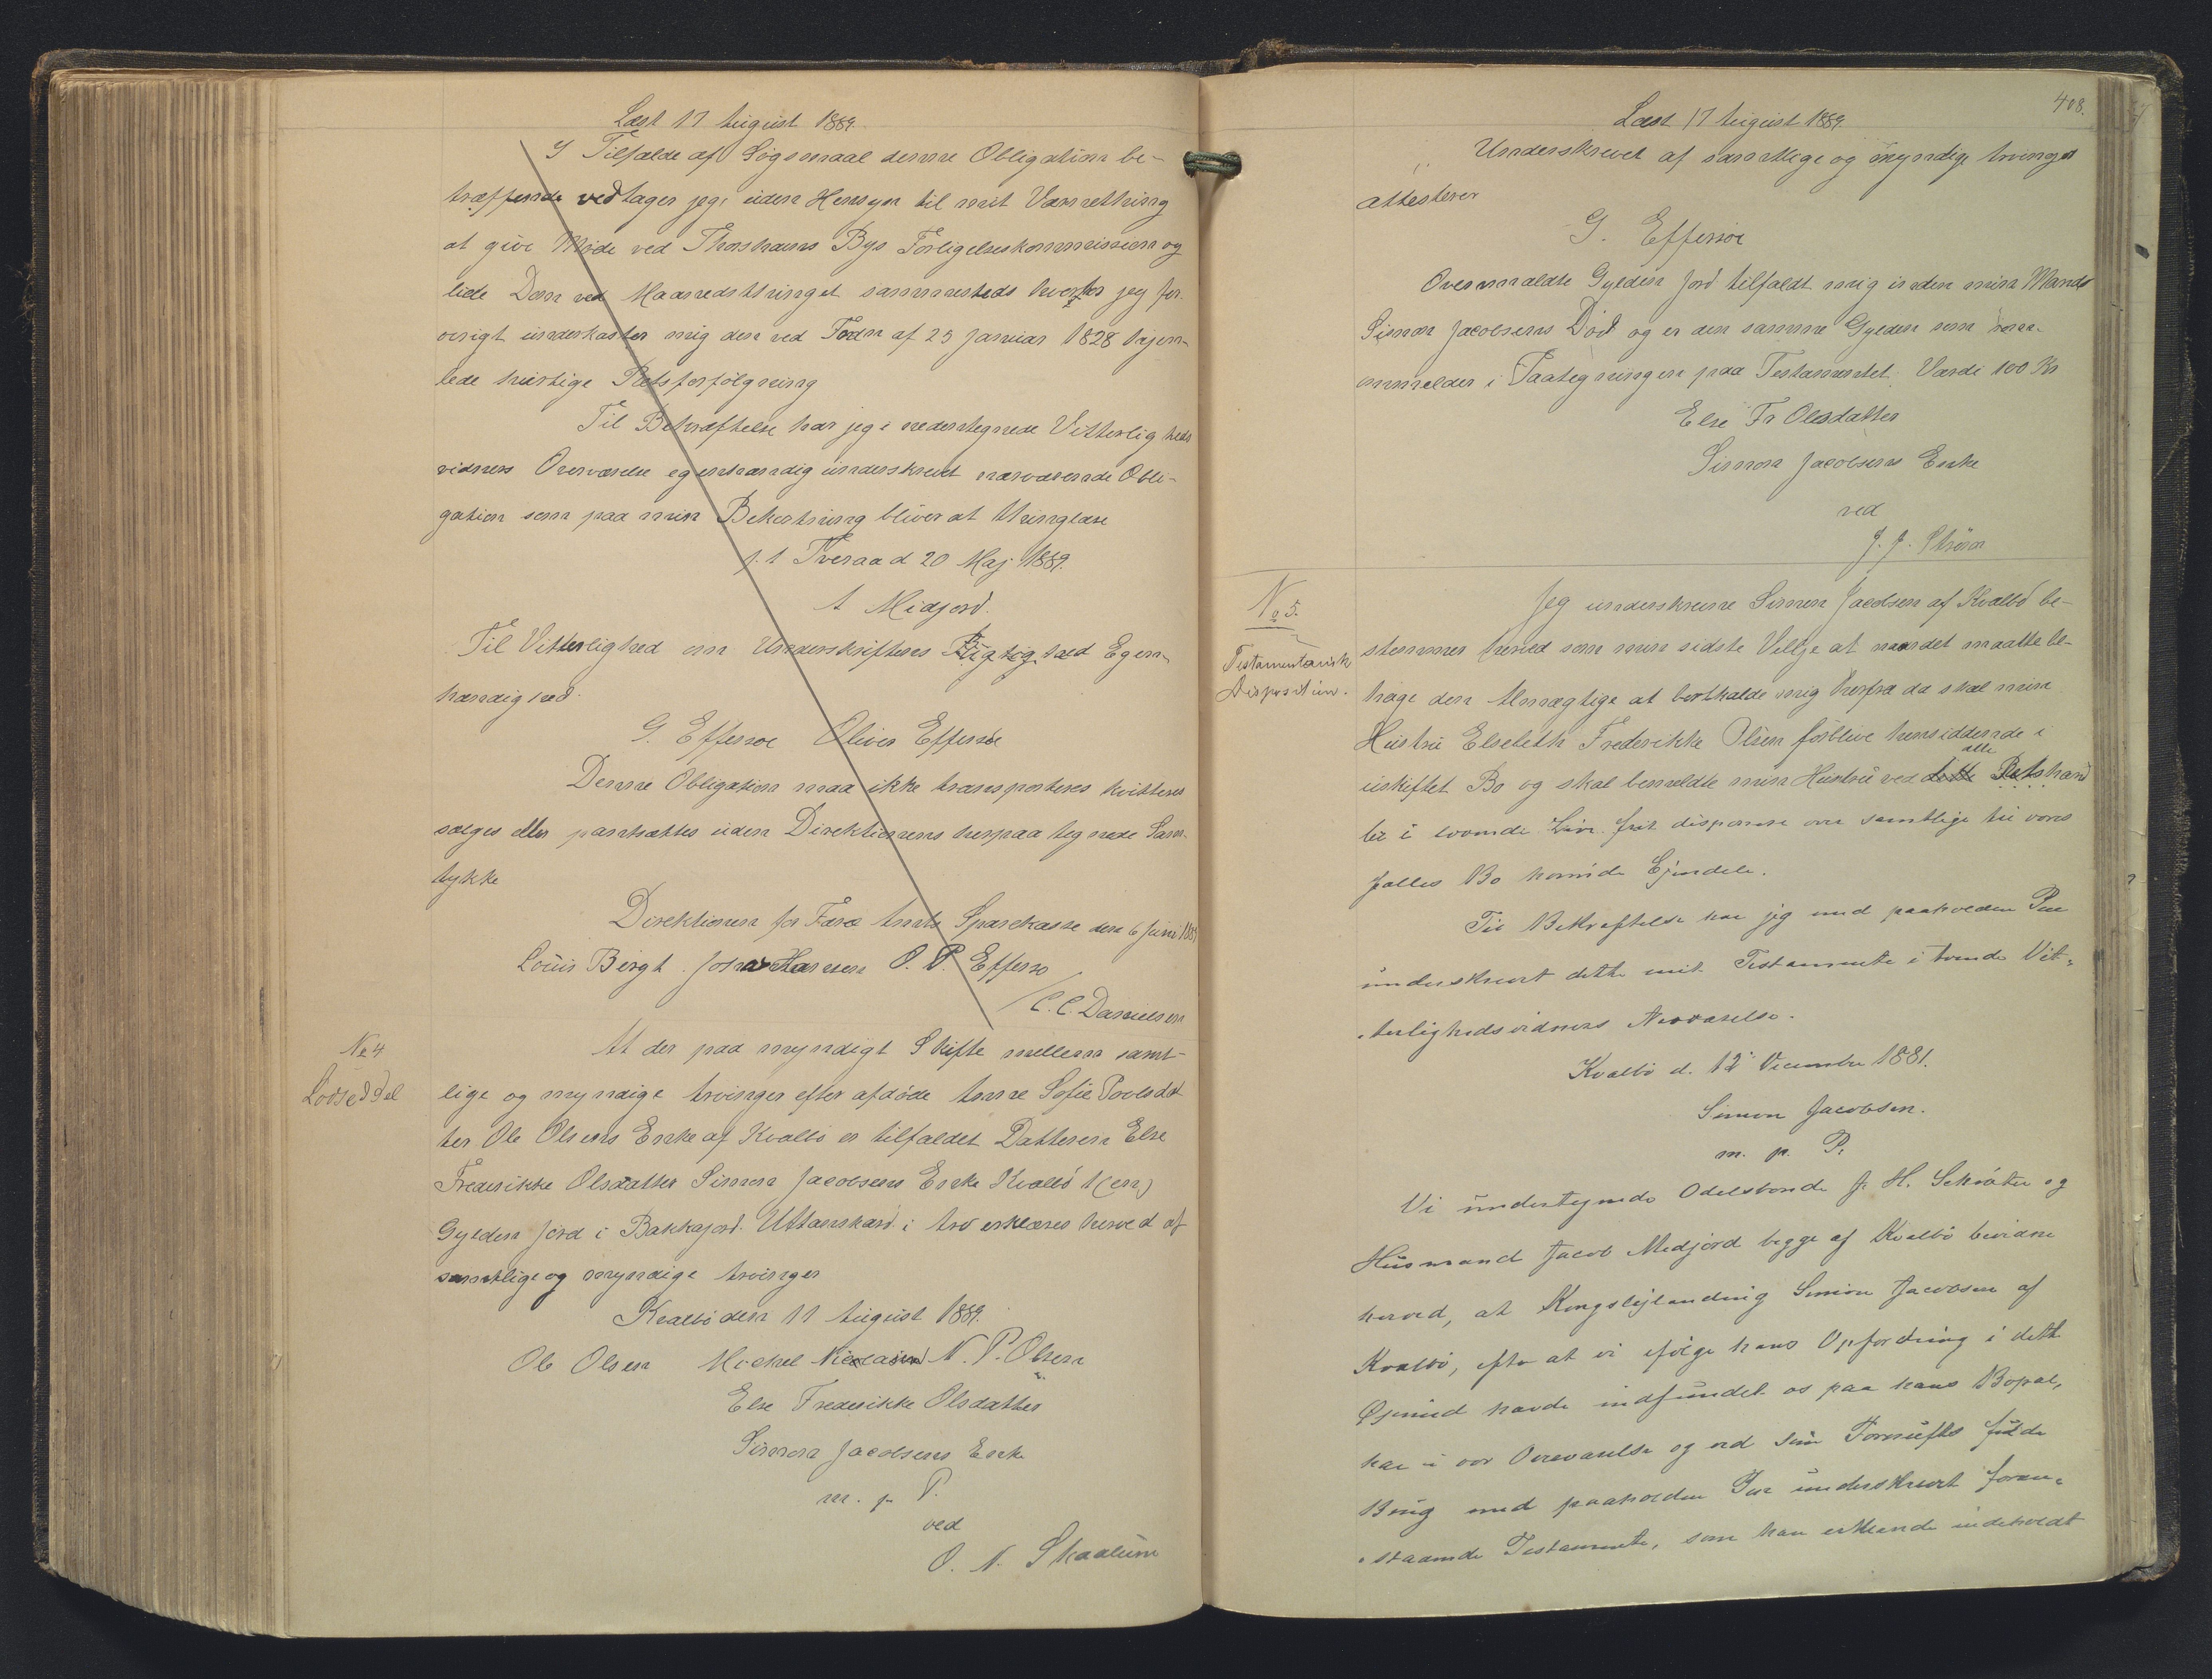 Læst 17 August 1889.
I Tilfælde af Søgsmaal denne Obligation be-
træffende vedtager jeg, uden Hensyn til mit Værnething
at give Møde ved Thorshavns Bys Forligelseskommission og
lide Dom ved Maanedsthinget sammesteds hvorfor jeg for-
øvrigt underkaster mig den ved Fordn af 25 Januar 1828 hjem-
lede hurtige Retsforfölgning
Til Bekræftelse har jeg i nedentegnede Vitterligheds
vidners Overværelse egenhændig underskrevet nærværende Obli-
gation som paa min Bekostning bliver at thinglæse
p. t Tveraa d 20 Maj 1889.
A Midjord.
Til Vitterlighed om Underskriftens Rigtighed Egen-
hændighed.
G. Effersøe Oliver Effersöe
Denne Obligation maa ikke transporteres kvitteres
sælges eller pantsættes uden Direktionens herpaa tegnede Sam-
tykke
Direktionen for Færø Amts Sparekasse den 6 Juni 1889
Louis Bergh. Johs Hansen O. P. Effersø
/C. C. Danielsen
No 4
Lodseddel
At der paa myndigt Skifte mellem samt-
lige og myndige Arvinger efter afdöde Anne Sofie Poulsdat
ter Ole Olsens Enke af Kvalbö er tilfaldet Datteren Else
Frederikke Olsdatter Simon Jacobsens Enke Kvalbö 1 (en)
Gylden Jord i Bakkajord. Uttanskard i Arv erklæres herved af
samtlige og myndige Arvinger
Kvalbö den 11 August 1889.
Ole Olsen Mickel Nicolaisen N. P. Olsen
Else Frederikke Olsdatter
Simon Jacobsens Enke
m. p. P.
ved
O. N. Skaalum
408.
Læst 17 August 1889.
Underskrevet af samtlige og myndige Arvinger
attesterer
G. Effersöe
Ovenmeldte Gylden Jord tilfaldt mig inden min Mands
Simon Jacobsens Död og er den samme Gylden som
ommeldes i Paategningen paa Testamentet. Værdi 100 Kr
Else Fr Olsdatter
Simon Jacobsens Enke
ved
J. J. Ström
No 5.
Testamentarisk
Disposition.
Jeg underskrevne Simon Jacobsen af Kvalbö be-
stemmer herved som min sidste Villje at naar det maatte be-
hage den Almægtige at bortkalde mig herfra da skal min
Hustru Elsebeth Frederikke Olsen forblive hensiddende i
uskiftet Bo og skal bemeldte min Hustru ved dette alle Retshand
ler i levende Live frit disponere over samtlige til vores
fælles Bo hørende Ejendele.
Til Bekræftelse har jeg med paaholden Pen
underskrevet dette mit Testamente i tvende Vit-
terlighedsvidners Nærværelse.
Kvalbö d. 12 December 1881.
Simon Jacobsen.
m. p. P.
Vi undertegnede Odelsbonde J. H. Schröter og
Husmand Jacob Midjord begge af Kvalbö bevidne
herved, at Kongslejlænding Simon Jacobsen af
Kvalbö, efter at vi ifölge hans Opfordring i dette
Øjemed havde indfundet os paa hans Bopæl,
har i vor Overværelse og ved sin Fornufts fulde
Brug med paaholden Pen underskrevet foran-
staaende Testamente, som han erkjende indeholdt